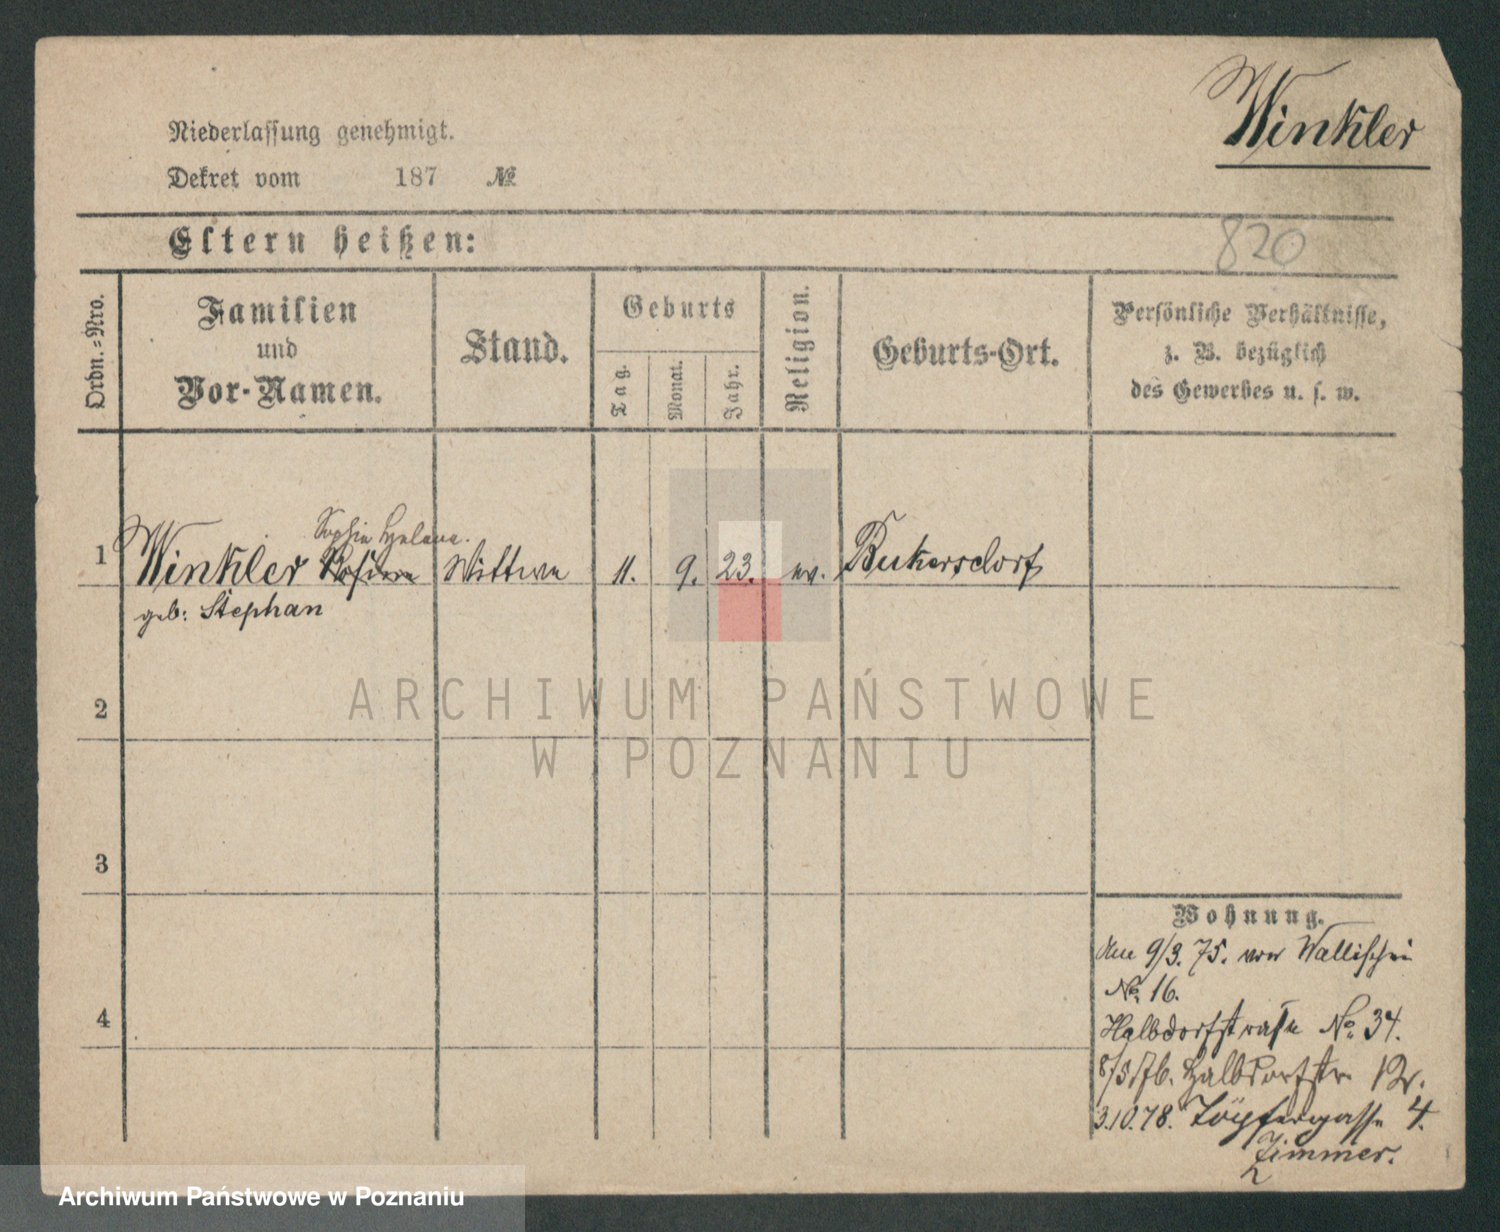 Winkler
Niederlassung genehmigt.
Dekret vom 187 №
820
Eltern heißen:
Ordn.-Nro.
Familien
und
Vor-Namen.
Stand.
Geburts
Tag.
Monat.
Jahr.
Religion.
Geburts-Ort.
Persönliche Verhältnisse,
z. B. bezüglich
des Gewerbes u. s. w.
Sophie Helene.
1 Winkler Rosina Wittwe 11. 9. 23. ev. Beukersdorf
geb: Stephan
2
ARCHIWUM PAŃSTWOWE
W POZNANIU
3
Wohnung.
Am 9/3. 75. von Wallischei
No. 16.
4
Halbdorfstrasse No. 34.
8/5/76. Halbdorfstr 12.
3.10.78. Töpfergasse 4.
Zimmer.
Archiwum Państwowe w Poznaniu